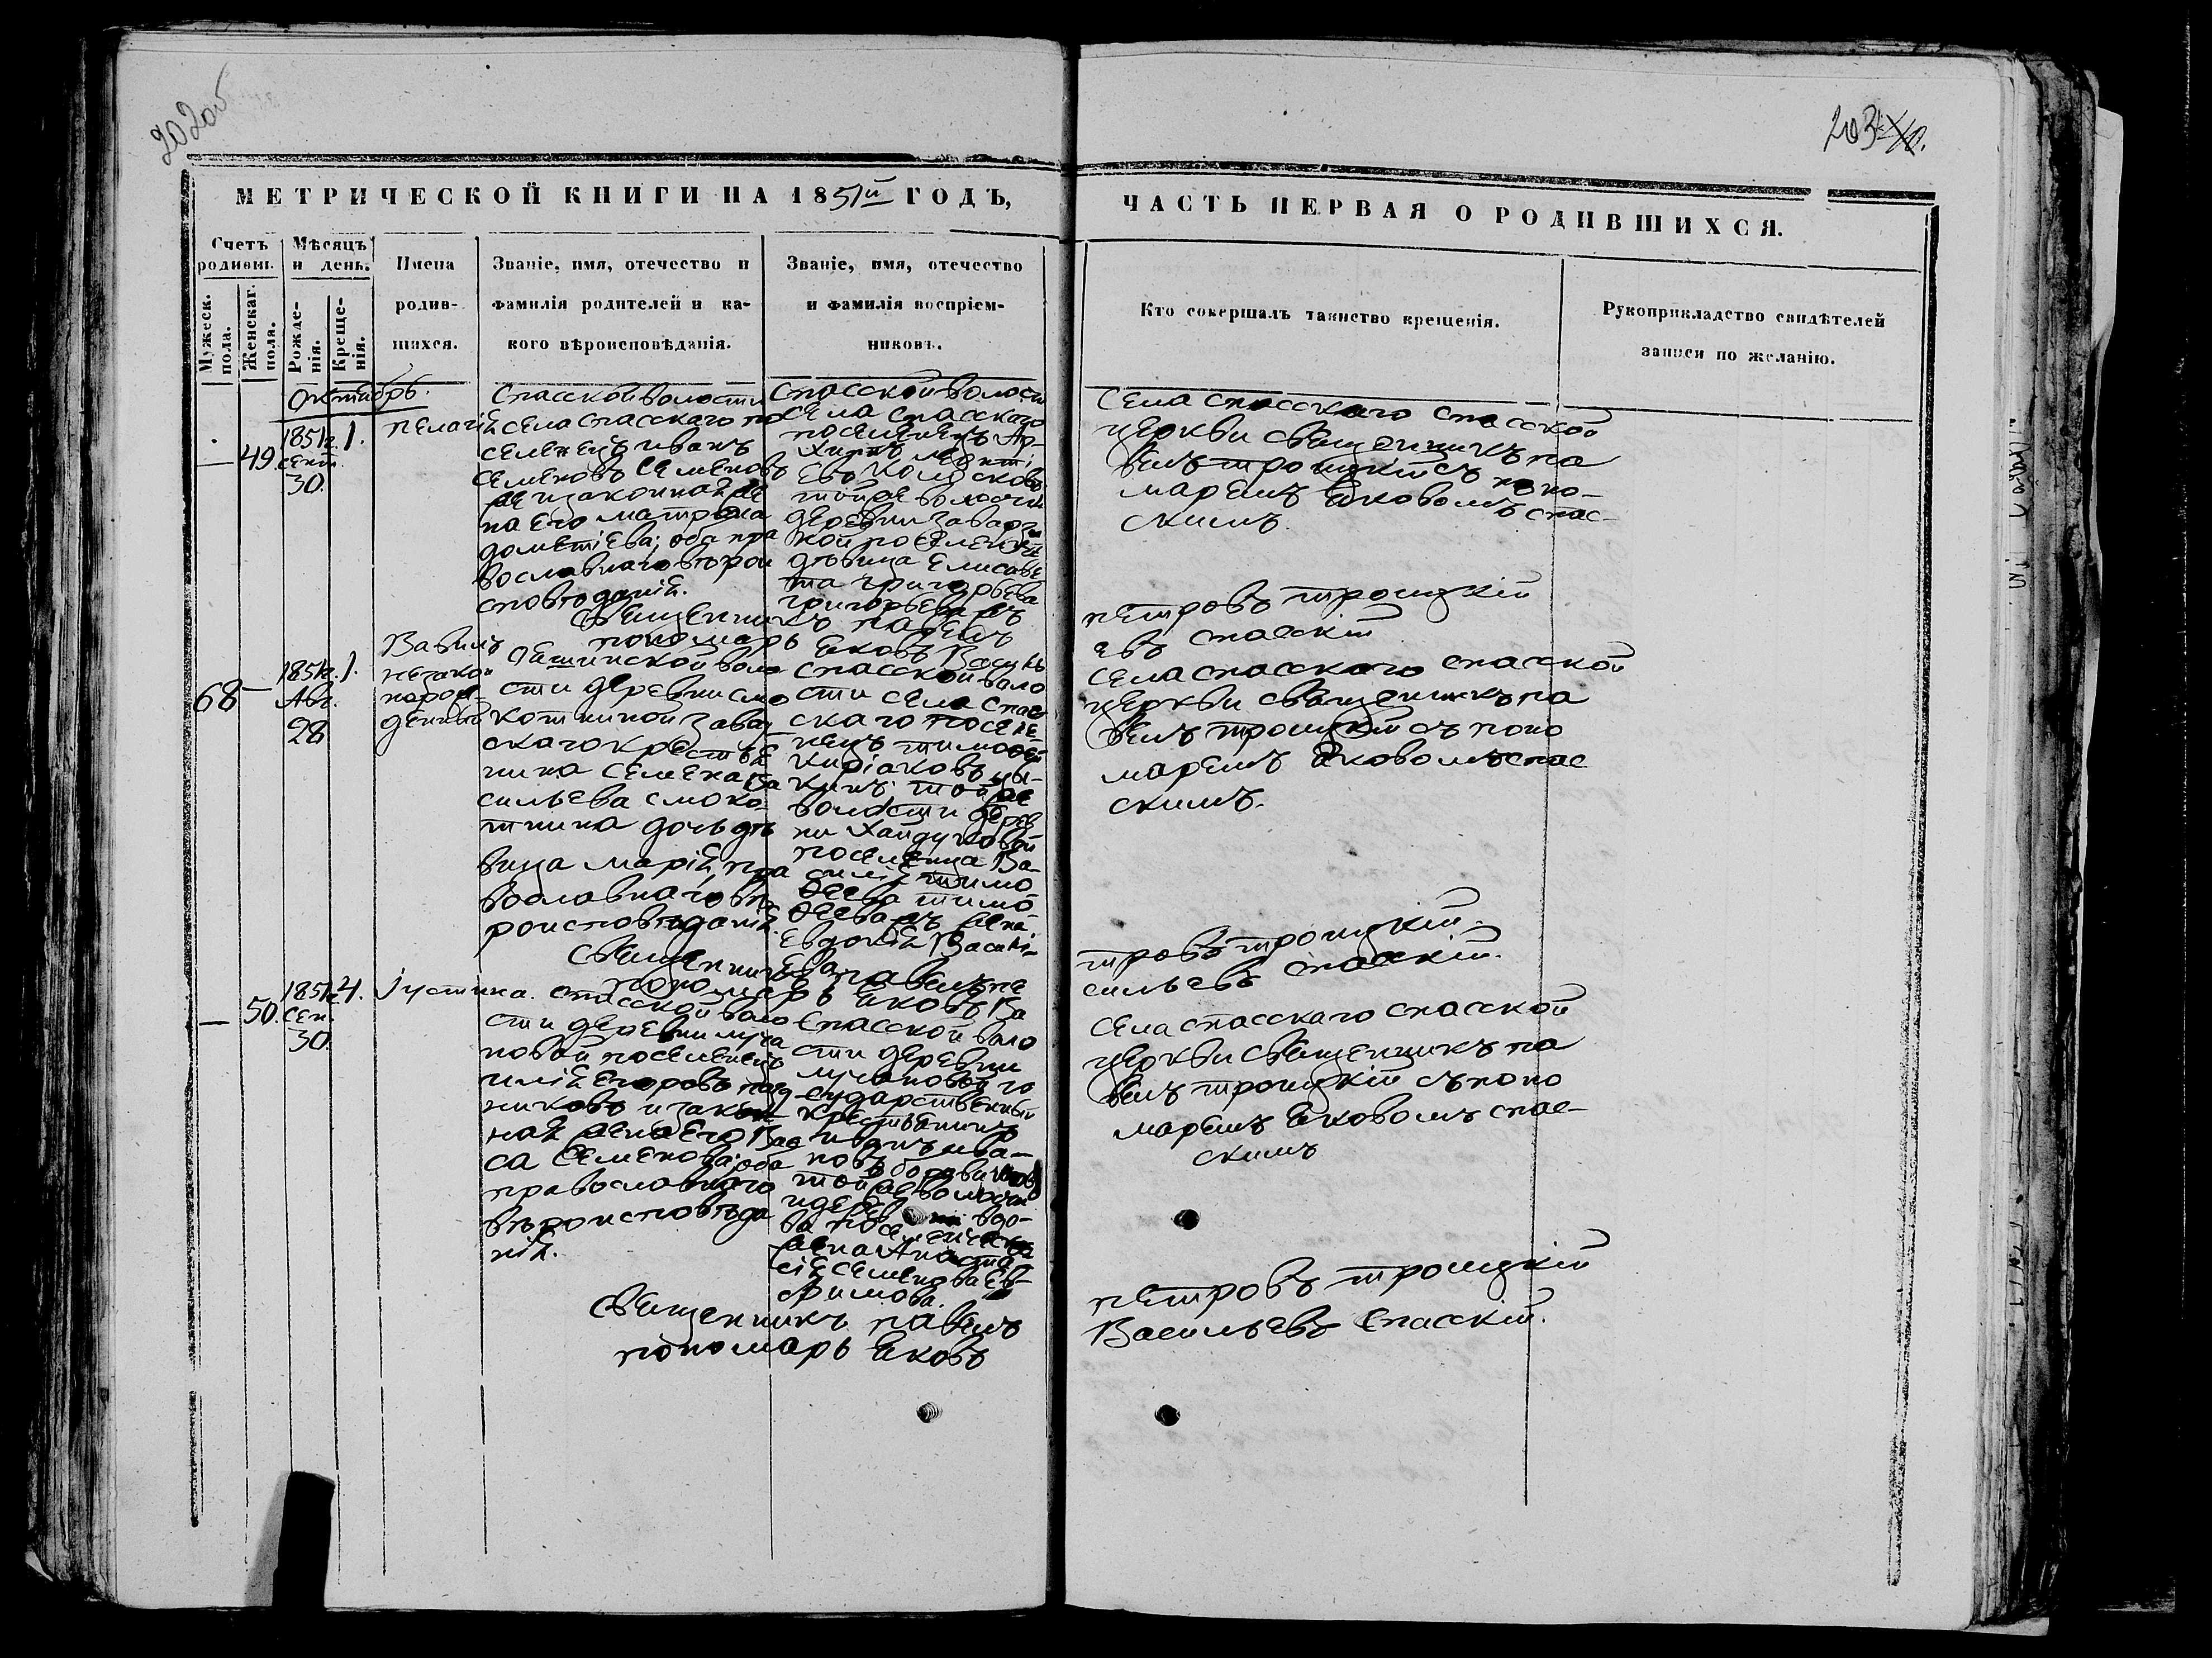 202об
203
МЕТРИЧЕСКОЙ КНИГИ НА 1851й ГОДЪ,
ЧАСТЬ ПЕРВАЯ О РОДИВШИХСЯ.
Счетъ родивш.
Мужеск. пола.
Женскаг. пола.
Мѣсяцъ и день.
Рожде-
нія.
Креще-
нія.
Имена
родив-
шихся.
Званіе, имя, отечество и
фамилія родителей и ка-
кого вѣроисповѣданія.
Званіе, имя, отечество
и фамилія воспріем-
никовъ.
Кто совершалъ таинство крещенія.
Рукоприкладство свидѣтелей
записи по желанію.
октябрь.
49
1851г.
сент.
30.
1.
Пелагія
Спасской волости
села спасскаго по
селенецъ иванъ
семеновъ семеновъ
и законная же
на его матрона
дометіева; оба пра
вославнаго вѣрои
споведанія.
Спасской волости
села спасскаго
поселенецъ
той же волости
деревни
кой
дѣвица елисаве
та григорьева
григорьева
села спасскаго спасской
церкви священникъ па
велъ троицкій съ поно-
маремъ яковомъ спас-
скимъ.
священникъ павелъ
петровъ троицкій
пономарь яковъ Василь
евъ спасскій
68
1851г.
Авг.
28
1.
Вавилъ
незакон
норож-
денный
волости деревни смо
котиной
скаго крестья
нина семена Ва
сильева смоко
тнина дочь дѣ
вица марія, пра
вославнаго вѣ
роисповѣданія.
спасской воло
сти села спас
скаго поселе
нецъ тимофей
киріаковъ
кинъ той же
волости дерев
ни хайдуковой
поселенца Ва
силія тимо
феева тимо
феева жена
евдокія Василі-
ева
села спасскаго спасской
церкви священникъ па
велъ троицкій съ поно
маремъ яковомъ спас
скимъ.
священникъ павелъ пе
тровъ троицкій.
пономарь яковъ Ва
сильевъ спасскій.
50.
1851г.
сен.
30.
4.
Іустина.
спасской воло
сти деревни луча
новой поселенецъ
илія егоровъ
никовъ и закон
ная жена его Вас
са семенова; оба
православнаго
вѣроисповѣда
нія.
Спасской воло
сти деревни
лучановой го
сударственный
крестьянинъ
иванъ ива-
новъ
той же волости
и деревни вдо-
ва поселенческая
жена Анаста
сія семенова Еф-
римова.
села спасскаго спасской
церкви священникъ па
велъ троицкій съ поно
маремъ яковомъ спас-
скимъ
священникъ павелъ
петровъ троицкій
пономарь яковъ
Васильевъ Спасскій.